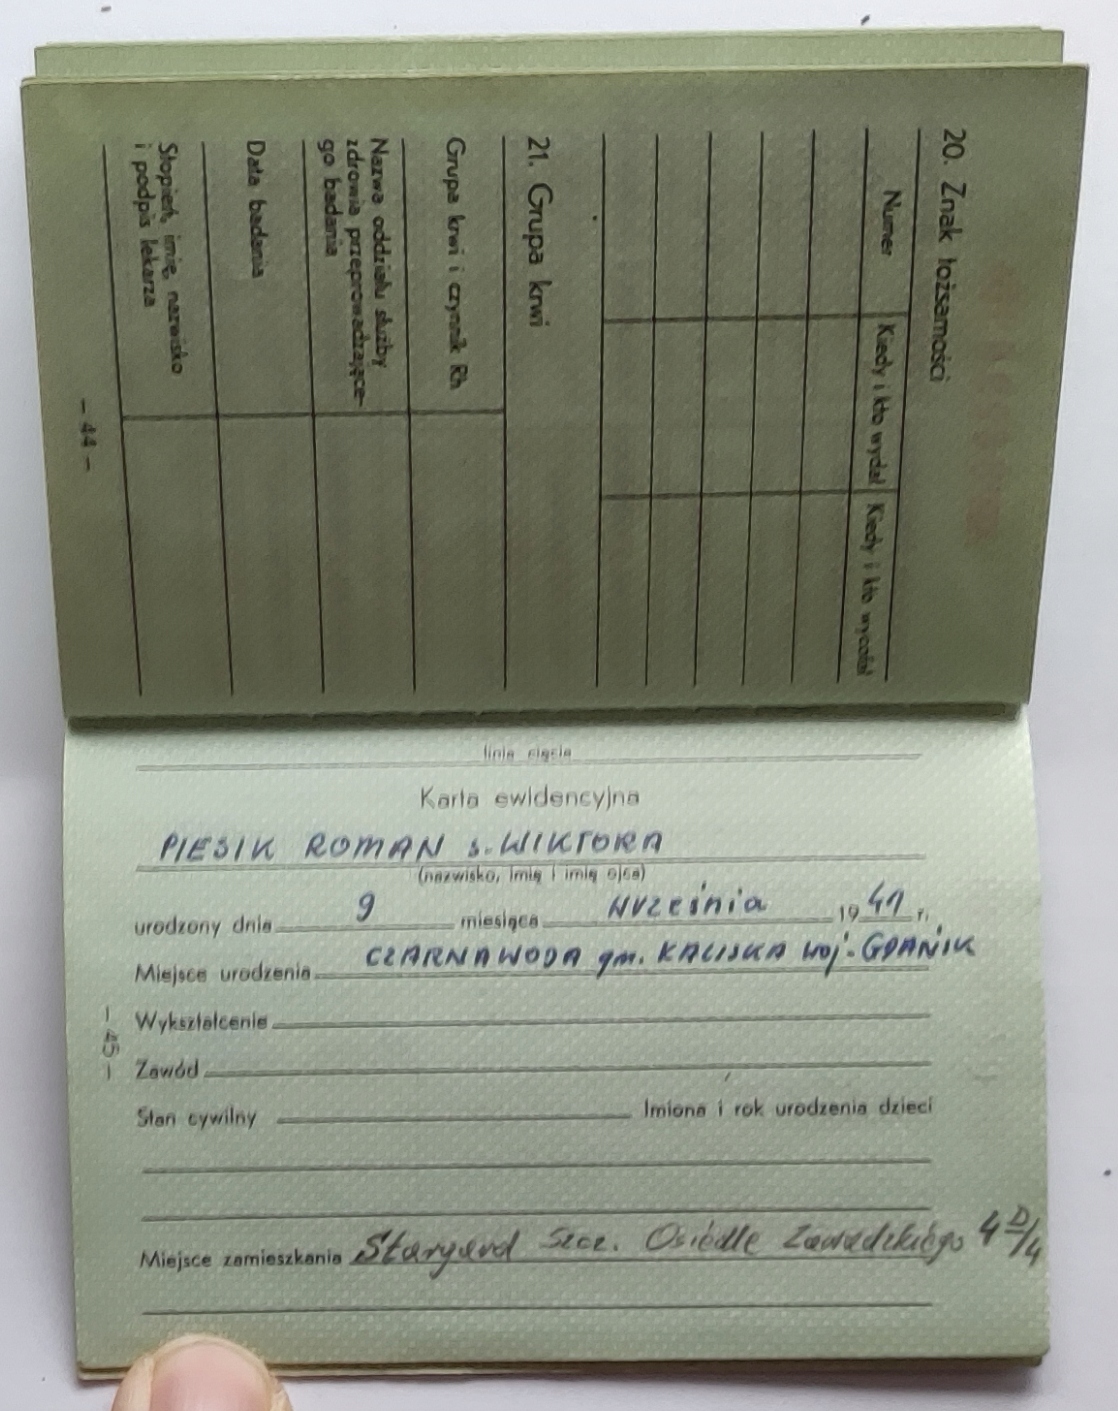 20. Znak tożsamości
Numer Kiedy i kto wydał Kiedy i kto wycofał
21. Grupa krwi
Grupa krwi i czynnik Rh
Nazwa oddziału służby
zdrowia przeprowadzające-
go badania
Data badania
Stopień, imię, nazwisko
i podpis lekarza
— 44 —
linia cięcia
Karta ewidencyjna
PIESIK ROMAN s. WIKTORA
(nazwisko, imię i imię ojca)
urodzony dnia 9 miesiąca września 1941 r.
Miejsce urodzenia CZARNA WODA gm. KALISKA woj. GDAŃSK
Wykształcenie
Zawód
Stan cywilny Imiona i rok urodzenia dzieci
Miejsce zamieszkania Stargard Szcz. Osiedle Zawadzkiego 4 D/4
— 45 —